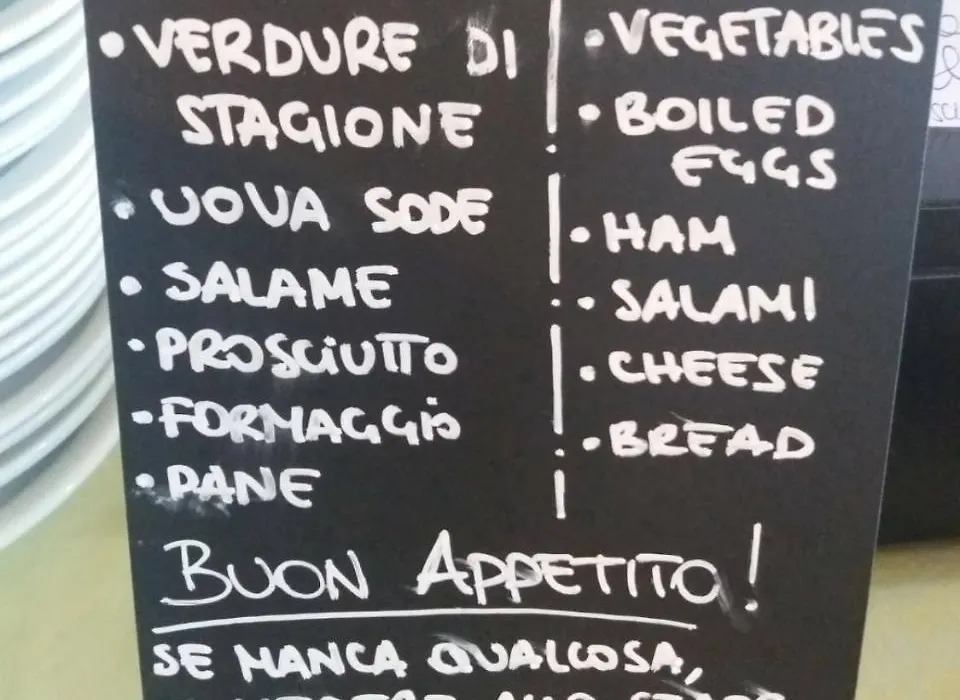 • VERDURE DI
STAGIONE
• UOVA SODE
• SALAME
• PROSCiUTTO
• FORMAGGiO
• PANE
• VEGETABLES
• BOILED
EGGS
• HAM
• SALAMI
• CHEESE
• BREAD
BUON APPETITO!
SE MANCA QUALCOSA,